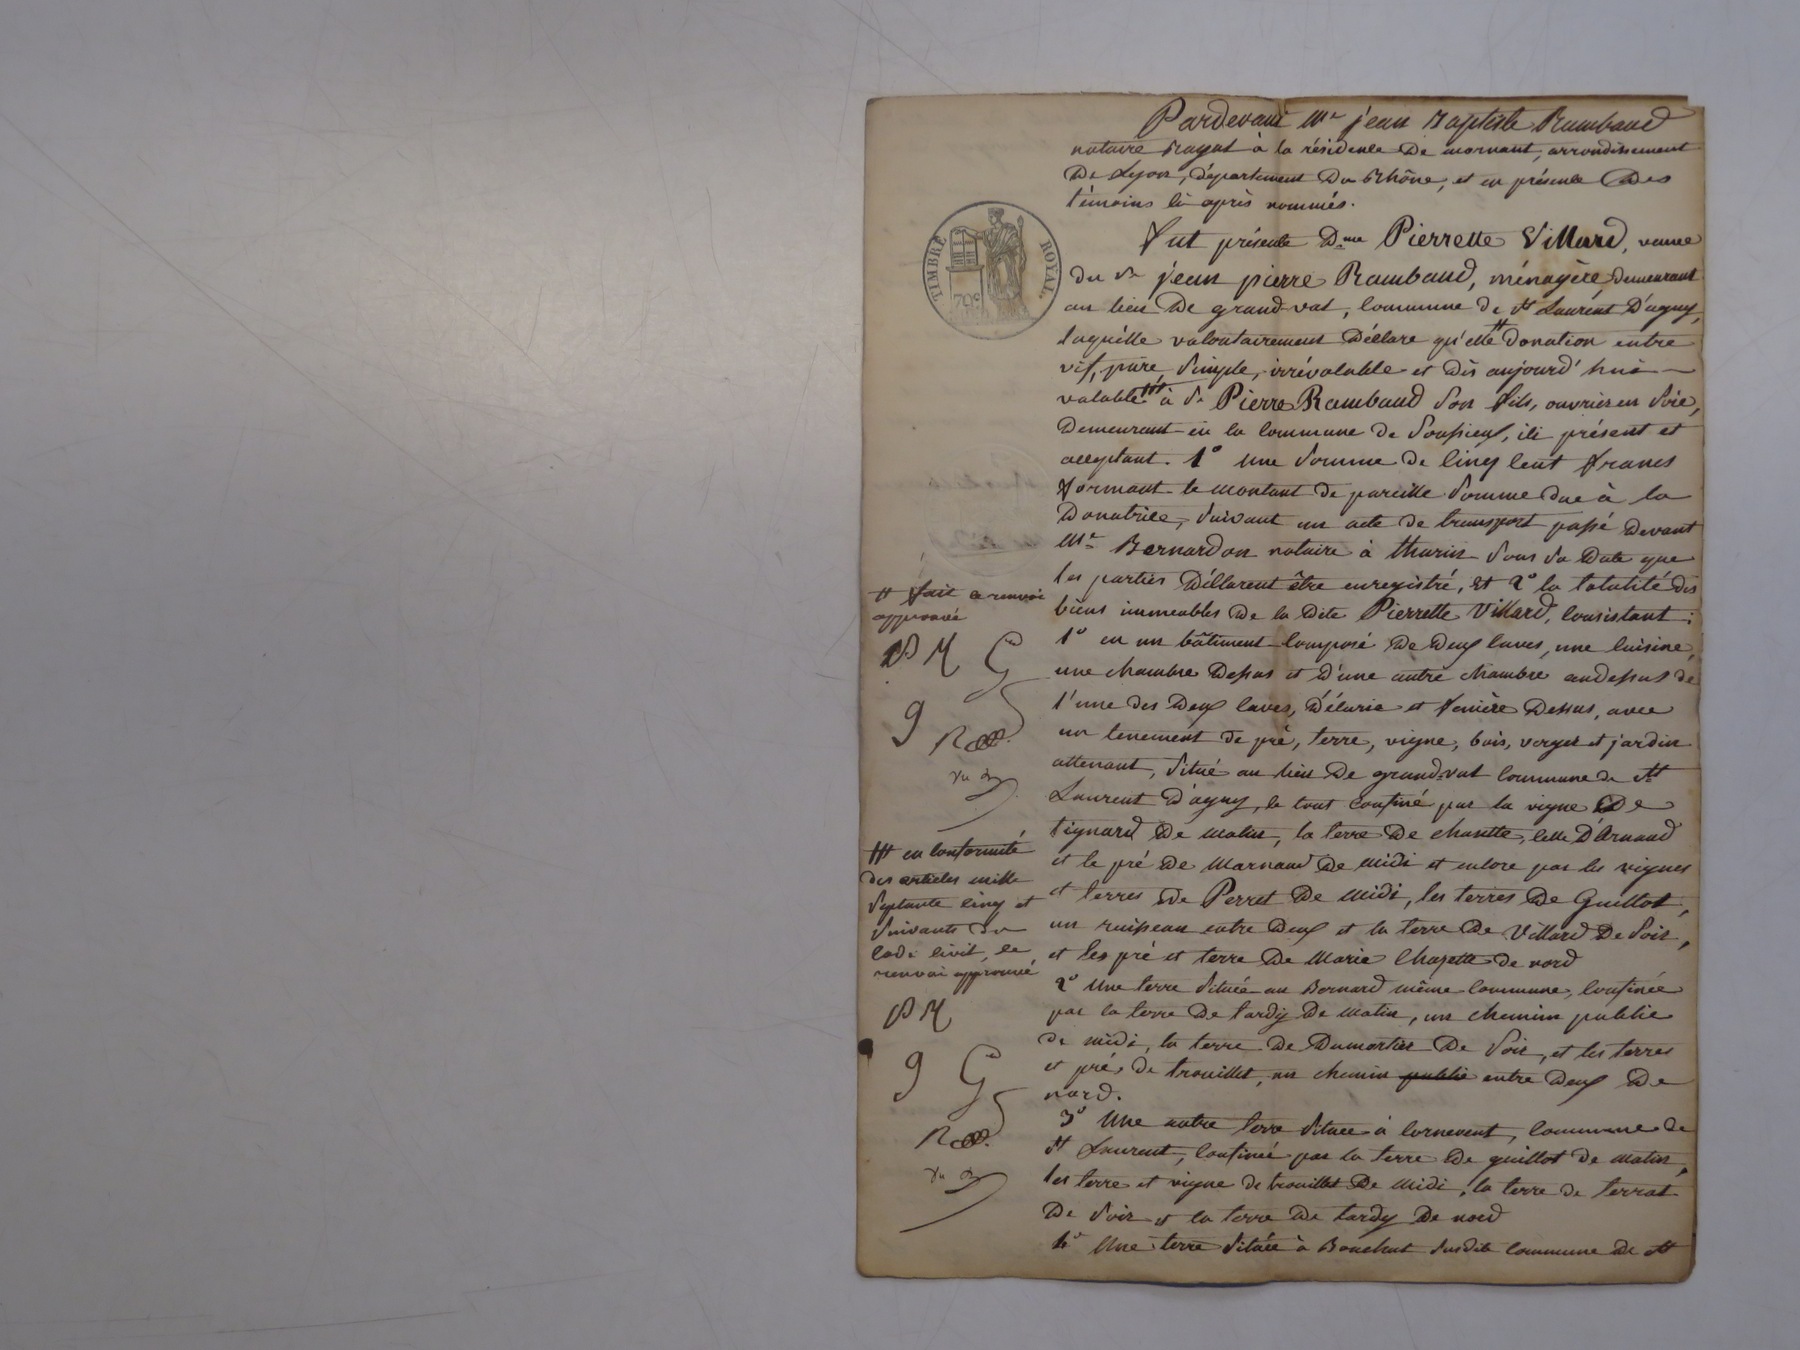 Pardevant Me jean Baptiste Rambaud
notaire Royal à la résidence De mornant, arrondissement
De Lyon, département Du Rhône, et en présence Des
témoins ci après nommés.
TIMBRE ROYAL
70c
Fut présente Dme Pierrette Villard, veuve
du sr jean pierre Rambaud, ménagère, demeurant
au lieu De grand-val, commune de st Laurent D'agny,
laquelle volontairement Déclare qu'elle # donation entre
vif, pure, simple, irrévocable et Dès aujourd'hui
valable ## à sr Pierre Rambaud son fils, ouvrier en soie,
Demeurant en la commune de Soussieux, ici présent et
acceptant. 1° une somme de cinq cent francs
formant le montant de pareille somme due à la
Donatrice, suivant un acte de transport passé devant
Me Bernardon notaire à thurin sous sa Date que
les parties Déclarent être enregistré, et 2° la totalité des
biens immeubles De la dite Pierrette Villard, consistant:
1° en un bâtiment composé De Deux caves, une cuisine,
une chambre Dessus et d'une autre chambre audessus de
l'une des Deux caves, d'écurie et fenière Dessus, avec
un tenement de pré, terre, vigne, bois, verger et jardin
attenant, situé au lieu De grand-val commune de st
Laurent D'agny, le tout confiné par la vigne De
tignard De matin, la terre De chazette, celle D'Arnaud
et le pré De Marnaud De midi et encore par les vignes
et terres De Perret De midi, les terres De Guillot,
un ruisseau entre Deux et la terre De Villard De soir,
et les pré et terre De Marie Chazette de nord
2° Une terre située au Bernard même commune, confinée
par la terre De tardy De matin, un chemin public
De midi, la terre De Dumortier De soir, et les terres
et prés de trouillet, un chemin public entre Deux De
nord.
3° Une autre terre située à Cornevent, commune de
st Laurent, confinée par la terre De guillot de matin,
les terre et vigne de trouillet De midi, la terre de terrat
De soir et la terre De tardy De nord
4° Une terre située à Bouchut susdite commune de st
# fait ce renvoi
approuvé
PM G
g
R
vu
## en conformité
des articles mille
septante cinq et
suivants du
code civil, ce
renvoi approuvé
PM
g G
R
vu